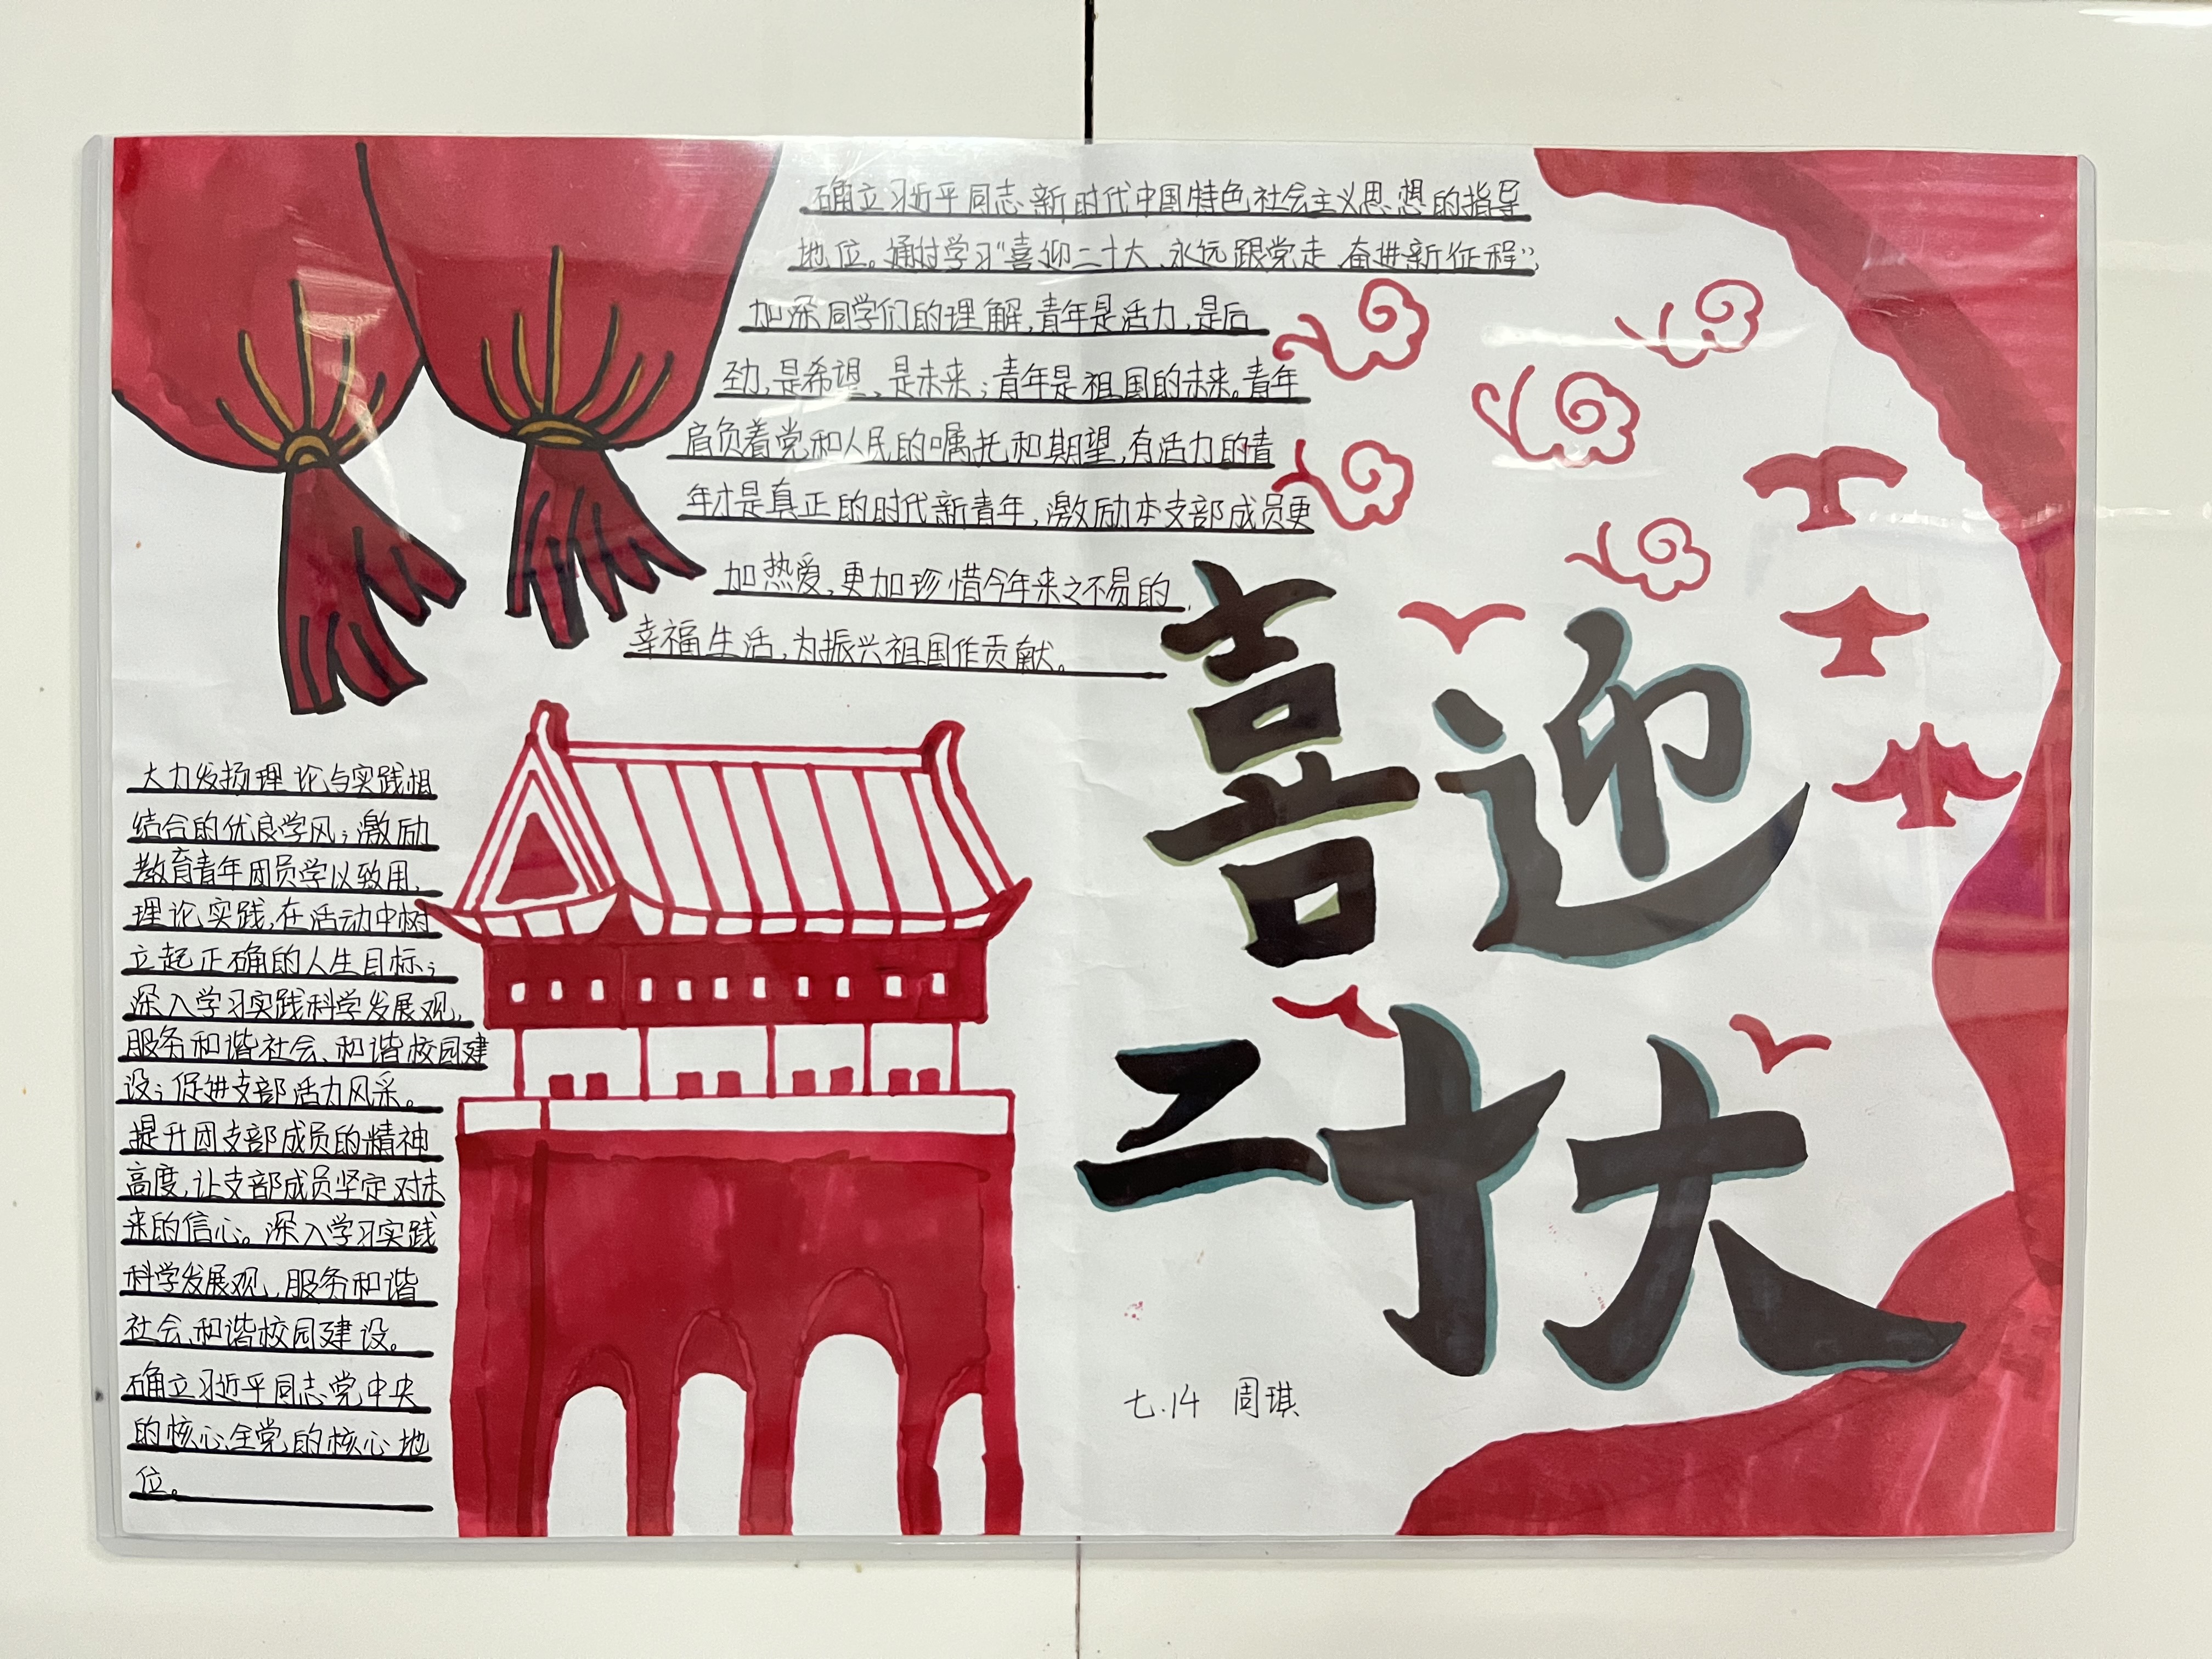 确立习近平同志新时代中国特色社会主义思想的指导
地位。通过学习“喜迎二十大、永远跟党走、奋进新征程”,
加深同学们的理解,青年是活力,是后
劲,是希望、是未来;青年是祖国的未来。青年
肩负着党和人民的嘱托和期望,有活力的青
年才是真正的时代新青年,激励本支部成员更
加热爱,更加珍惜今年来之不易的
幸福生活,为振兴祖国作贡献。
大力发扬理论与实践相
结合的优良学风;激励
教育青年团员学以致用、
理论实践,在活动中树
立起正确的人生目标;
深入学习实践科学发展观,
服务和谐社会、和谐校园建
设;促进支部活力风采。
提升团支部成员的精神
高度,让支部成员坚定对未
来的信心。深入学习实践
科学发展观,服务和谐
社会、和谐校园建设。
确立习近平同志党中央
的核心、全党的核心地
位。
喜迎
二十大
七.14 周琪